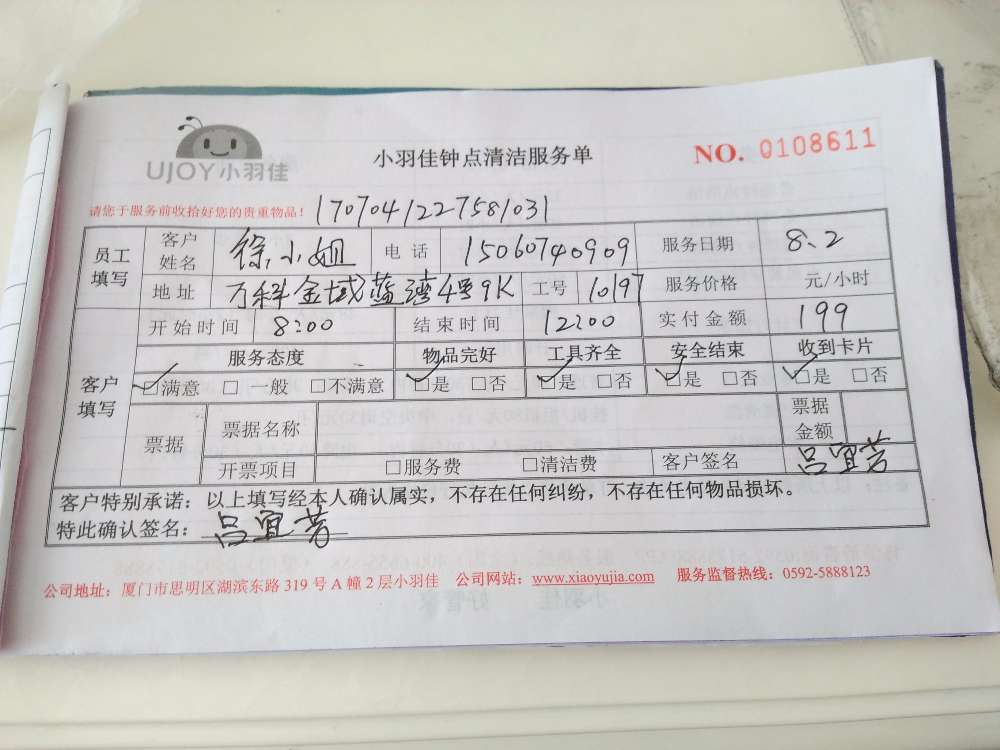 UJOY小羽佳
小羽佳钟点清洁服务单
NO. 0108611
请您于服务前收拾好您的贵重物品！ 1707041227581031
员工填写 客户姓名 徐小姐 电话 15060740909 服务日期 8、2
地址 万科金域蓝湾4号9K 工号 10197 服务价格 元/小时
开始时间 8:00 结束时间 12:00 实付金额 199
客户填写 服务态度 物品完好 工具齐全 安全结束 收到卡片
✓□满意 □一般 □不满意 ✓□是 □否 ✓□是 □否 ✓□是 □否 ✓□是 □否
票据 票据名称 票据金额
开票项目 □服务费 □清洁费 客户签名 吕宜芳
客户特别承诺：以上填写经本人确认属实，不存在任何纠纷，不存在任何物品损坏。
特此确认签名：吕宜芳
公司地址：厦门市思明区湖滨东路319号A幢2层小羽佳 公司网站：www.xiaoyujia.com 服务监督热线：0592-5888123